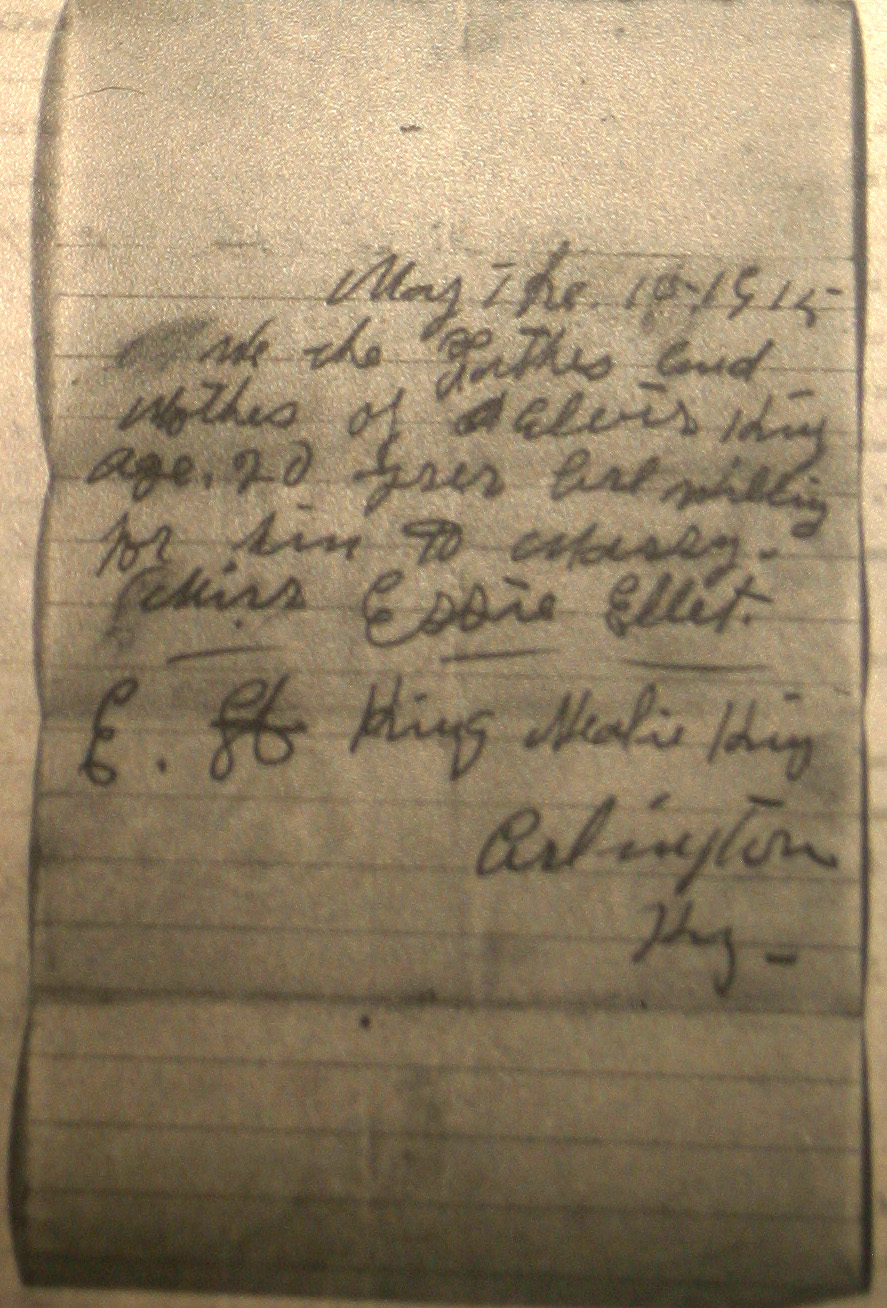 May The. 10-1915
We the Father and
Mother of Elvis King
age. 20 yrer are willing
for him to marry.
Miss Essie Ellet.
E. King Nealie King
Arlington
Ky-